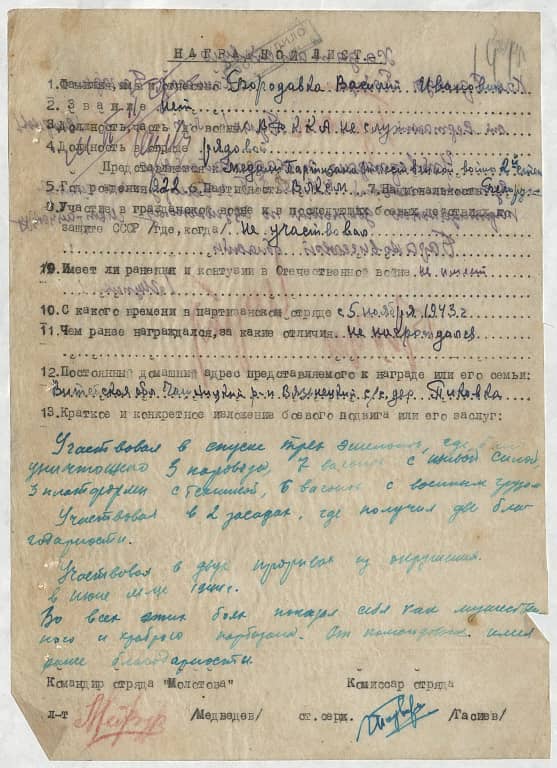 НАГРАДНОЙ ЛИСТ.
1. Фамилия, имя и отчество Бородавка Василий Иванович
2. Звание нет
3. Должность, часть В РККА не служ
4. Должность в отряде рядовой
Представляется к медали Партизану отечественной войны 2й степени
5. Год рождения 1922 6. Партийность ВЛКСМ 7. Национальность Белорус
8. Участие в гражданской войне и в последующих боевых действиях по
защите СССР /где, когда/ не участвовал
9. Имеет ли ранения и контузии в Отечественной войне не имеет
10. С какого времени в партизанском отряде с 5 ноября 1943 г.
11. Чем ранее награждался, за какие отличия не награждался
12. Постоянный домашний адрес представляемого к награде или его семьи:
Витебская обл. р-н с/с. дер.
13. Краткое и конкретное изложение боевого подвига или его заслуг:
Участвовал в спуске трех эшелонов, где
уничтожено 3 паровоза, 7 вагонов с живой силой,
3 платформы с техникой, 6 вагонов с военным грузом
Участвовал в 2 засадах, где получил две благ
одарности.
Участвовал в двух прорывах из окружения
в июне м-це 1944 г.
Во всех этих боях показал себя как мужествен
ного и храброго партизана. От командования имел
благодарности
Командир отряда "Молотова" Комиссар отряда
л-т /Медведев/ ст. серж. /Тасиев/